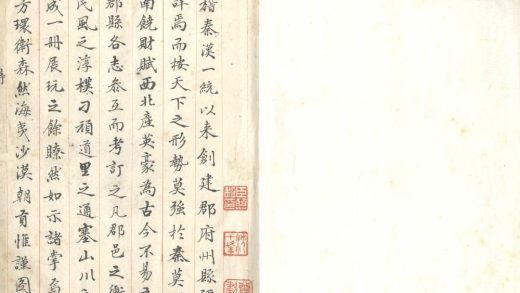 稽秦漢一統以来創建郡府州縣
詳焉而按天下之形勢莫強於秦莫
南饒財賦西北產英豪為古今不易
郡縣各志叅互而考訂之凡郡邑之衝
民風之淳樸刁頑道里之通塞山川之
成一冊展玩之餘瞭然如示諸掌焉
方環衛森然海夷沙漠朝貢惟謹圖